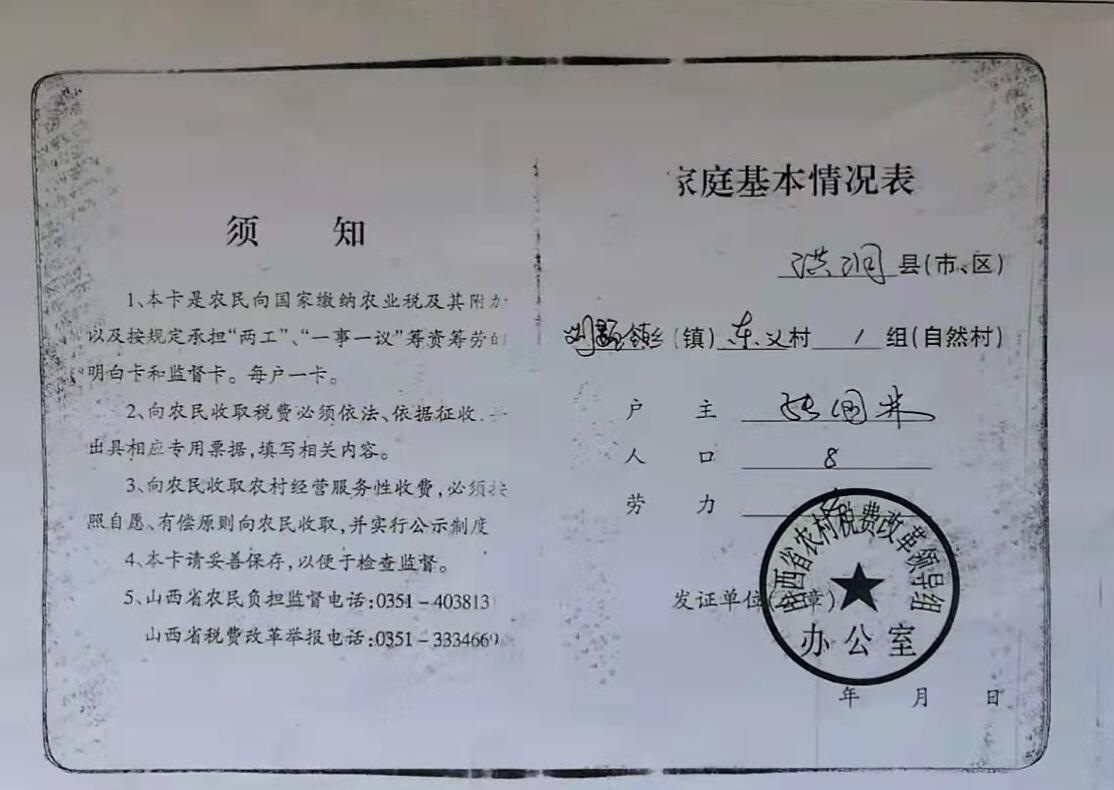 须 知
1、本卡是农民向国家缴纳农业税及其附加
以及按规定承担“两工”、“一事一议”筹资筹劳的
明白卡和监督卡。每户一卡。
2、向农民收取税费必须依法、依据征收,
出具相应专用票据,填写相关内容。
3、向农民收取农村经营服务性收费,必须按
照自愿、有偿原则向农民收取,并实行公示制度
4、本卡请妥善保存,以便于检查监督。
5、山西省农民负担监督电话:0351-403813
山西省税费改革举报电话:0351-3334669
家庭基本情况表
洪洞县(市、区)
乡(镇)东义村 1 组(自然村)
户 主
人 口 8
劳 力
发证单位(章)
山西省农村税费改革领导组
办公室
年 月 日